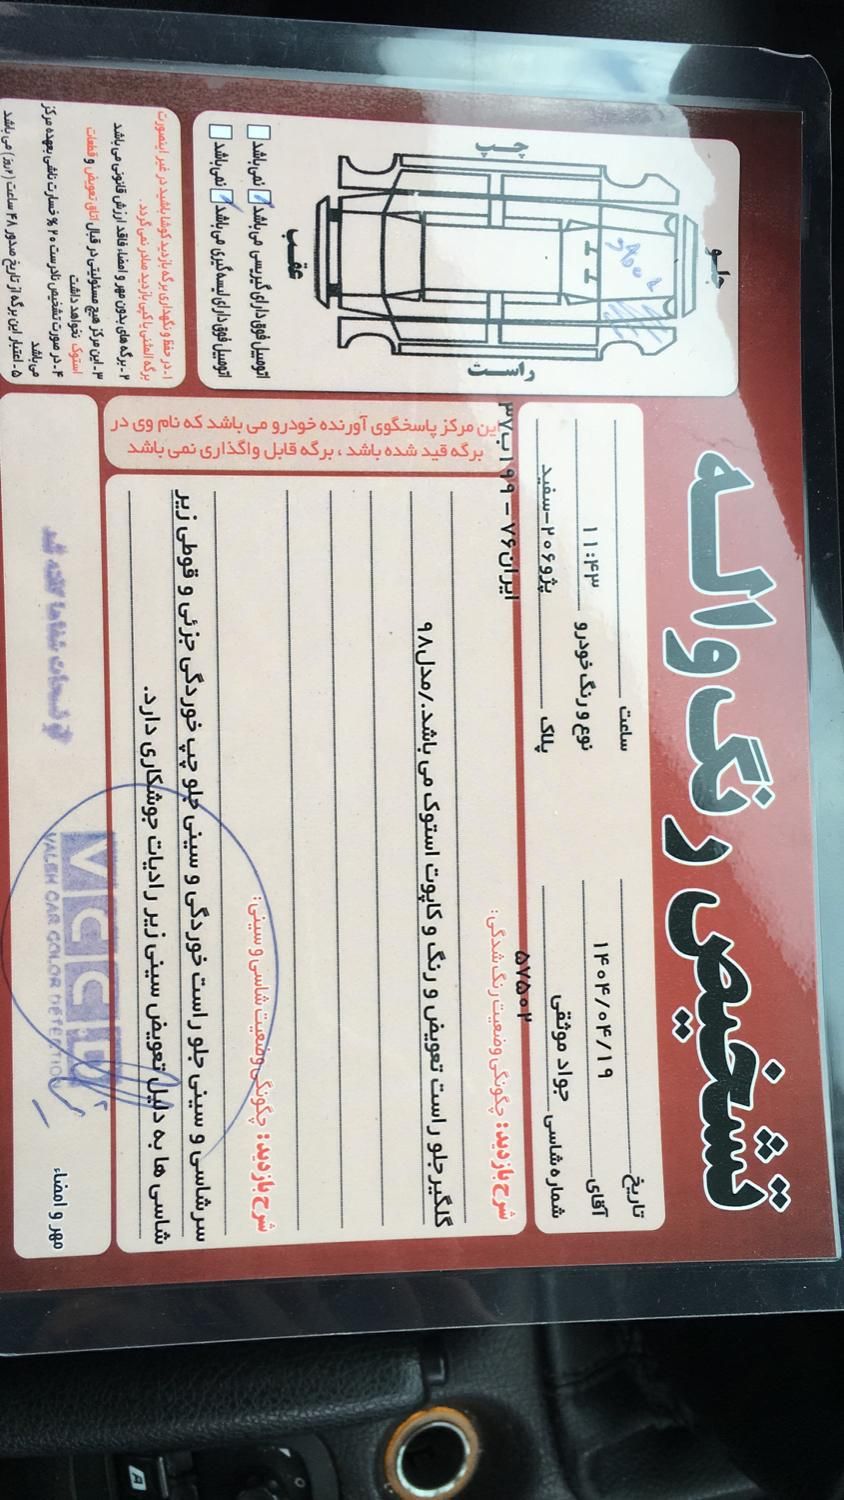 تشخیص رنگ واله
تاریخ ۱۴۰۴/۰۴/۱۹ ساعت ۱۱:۴۳
آقای جواد موثقی نوع و رنگ خودرو پژو۲۰۶-سفید
شماره شاسی ۵۷۵۰۲ پلاک ایران۷۶ - ۱۹۹ب۳۷
جلو
چپ
راست
عقب
استوک
اتومبیل فوق دارای گیریس می باشد نمی باشد
اتومبیل فوق دارای بسه گیری می باشد نمی باشد
این مرکز پاسخگوی آورنده خودرو می باشد که نام وی در
برگه قید شده باشد ، برگه قابل واگذاری نمی باشد
شرح بازدید: چگونگی وضعیت رنگ شدگی:
گلگیر جلو راست تعویض و رنگ و کاپوت استوک می باشد./مدل۹۸
شرح بازدید: چگونگی وضعیت شاسی و سینی:
سرشاسی و سینی جلو راست خوردگی و سینی جلو چپ خوردگی جزئی و قوطی زیر
شاسی ها به دلیل تعویض سینی زیر رادیات جوشکاری دارد.
۱- در حفظ و نگهداری برگه بازدید کوشا باشید در غیر اینصورت
برگه المثنی یا کپی بازدید صادر نمی گردد.
۲- برگه های بدون مهر و امضاء فاقد ارزش قانونی می باشد
۳- این مرکز هیچ مسئولیتی در قبال اتاق تعویض و قطعات
استوک نخواهد داشت
۴- در صورت تشخیص نادرست ۲۰ % خسارت ناشی بعهده مرکز
می باشد
۵- اعتبار این برگه از تاریخ صدور ۴۸ ساعت (۲روز) می باشد
مهر و امضاء
VCCD
VALEH CAR COLOR DETECTION
توضیحات شفاها گفته شد